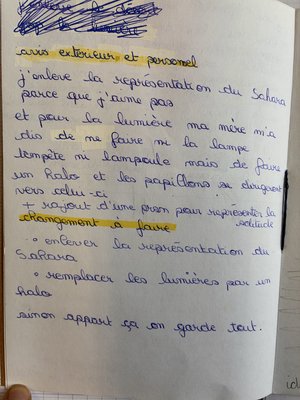 avis extérieur et personnel
j'enleve la représentation du Sahara
parce que j'aime pas
et pour la lumière ma mère m'a
dis de ne faire ni la lampe
tempête ni l'ampoule mais de faire
un halo et les papillons se dirigent
vers celui-ci
+ rajout d'une prsn pour représenter la
solitude
changement à faire
° enlever la représentation du
Sahara
° remplacer les lumières par un
halo
sinon appart ça on garde tout.